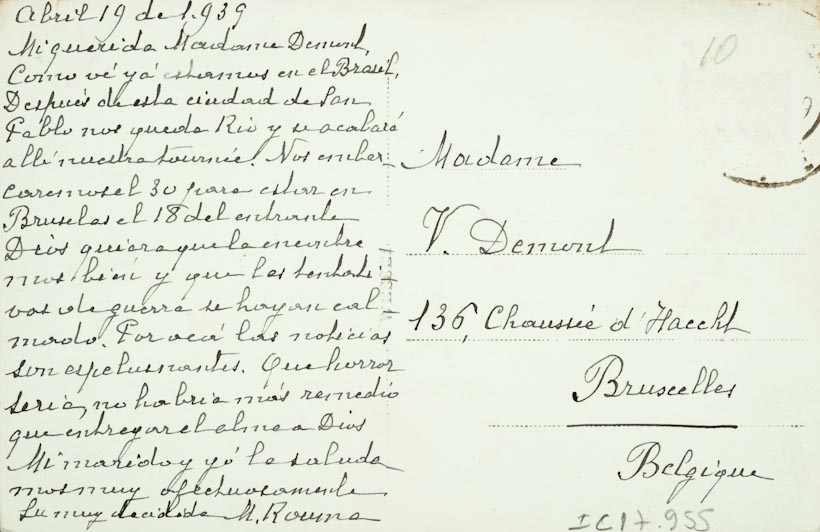 Abril 19 de 1.939
Mi querida Madame Demont,
Como vé yá estamos en el Brasil,
Después de esta ciudad de San
Pablo nos queda Rio y se acabará
allí nuestra tournée. Nos embar-
caremos el 30 para estar en
Bruselas el 18 del entrante
Dios quiera que la encontre
mos bien y que las tentati
vas de guerra se hayan cal-
mado. Por acá las noticias
son espeluznantes. Que horror
seria, no habria más remedio
que entregar el alma a Dios
Mi marido y yó la saluda
mos muy afectuosamente
Su muy decidida M. Rouma
10
Madame
V. Demont
136, Chaussée d'Haecht
Bruxelles
Belgique
IC17.955